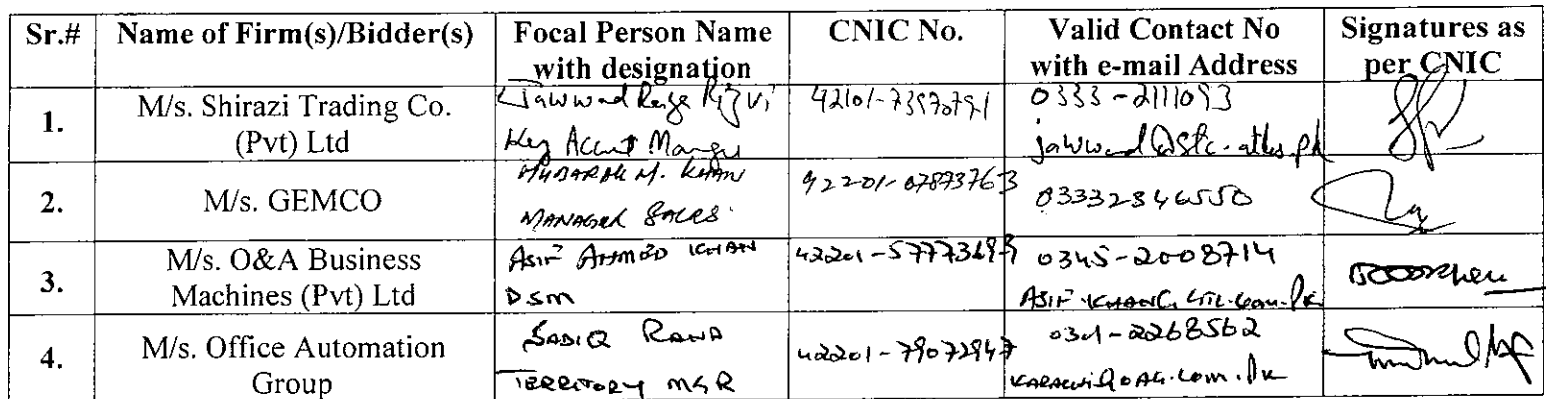 Sr.# Name of Firm(s)/Bidder(s) Focal Person Name with designation CNIC No. Valid Contact No with e-mail Address Signatures as per CNIC
1. M/s. Shirazi Trading Co. (Pvt) Ltd
Jawwad Raza Rizvi
Key Accunt Manger
42101-
0333-2111093
2. M/s. GEMCO
MUBARAK M. KHAN
MANAGER SALES.
42201-07873763
03332346550
3. M/s. O&A Business Machines (Pvt) Ltd
ASIF AHMED KHAN
DSM
0345-2008714
4. M/s. Office Automation Group
SADIQ RANA
TERRITORY MGR
42201-79072947
0301-2268562